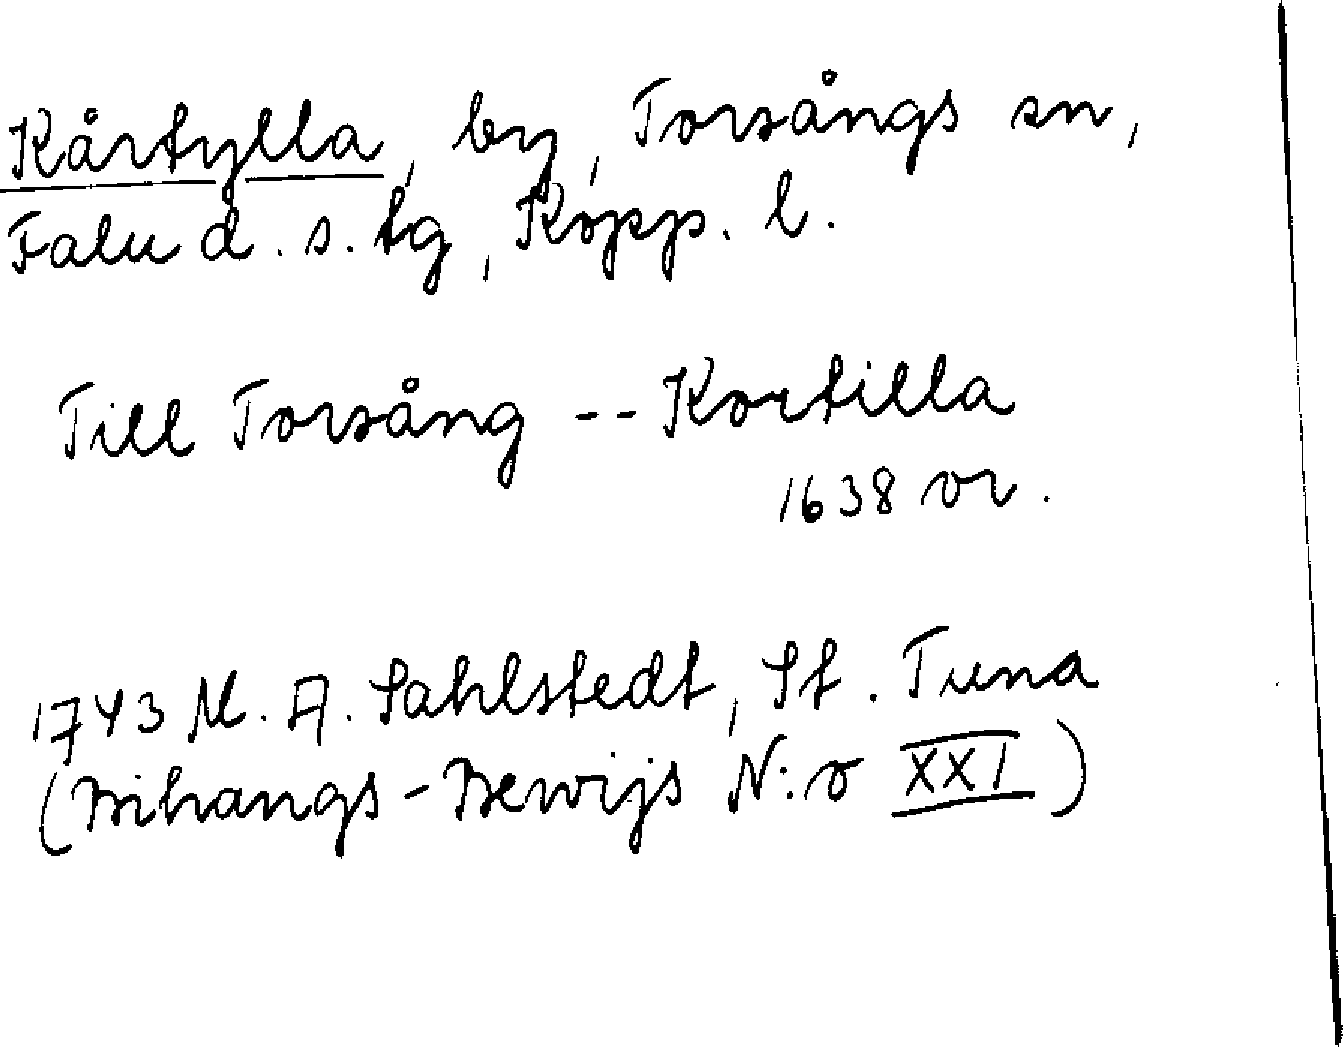 Kårtylla, by, Torsångs sn,
Falu d. s. tg, Kopp. l.
Till Torsång -- Kortilla
1638 or.
1743 M. A. Sahlstedt, St. Tuna
(Bihangs-Bewijs N:o XXI)